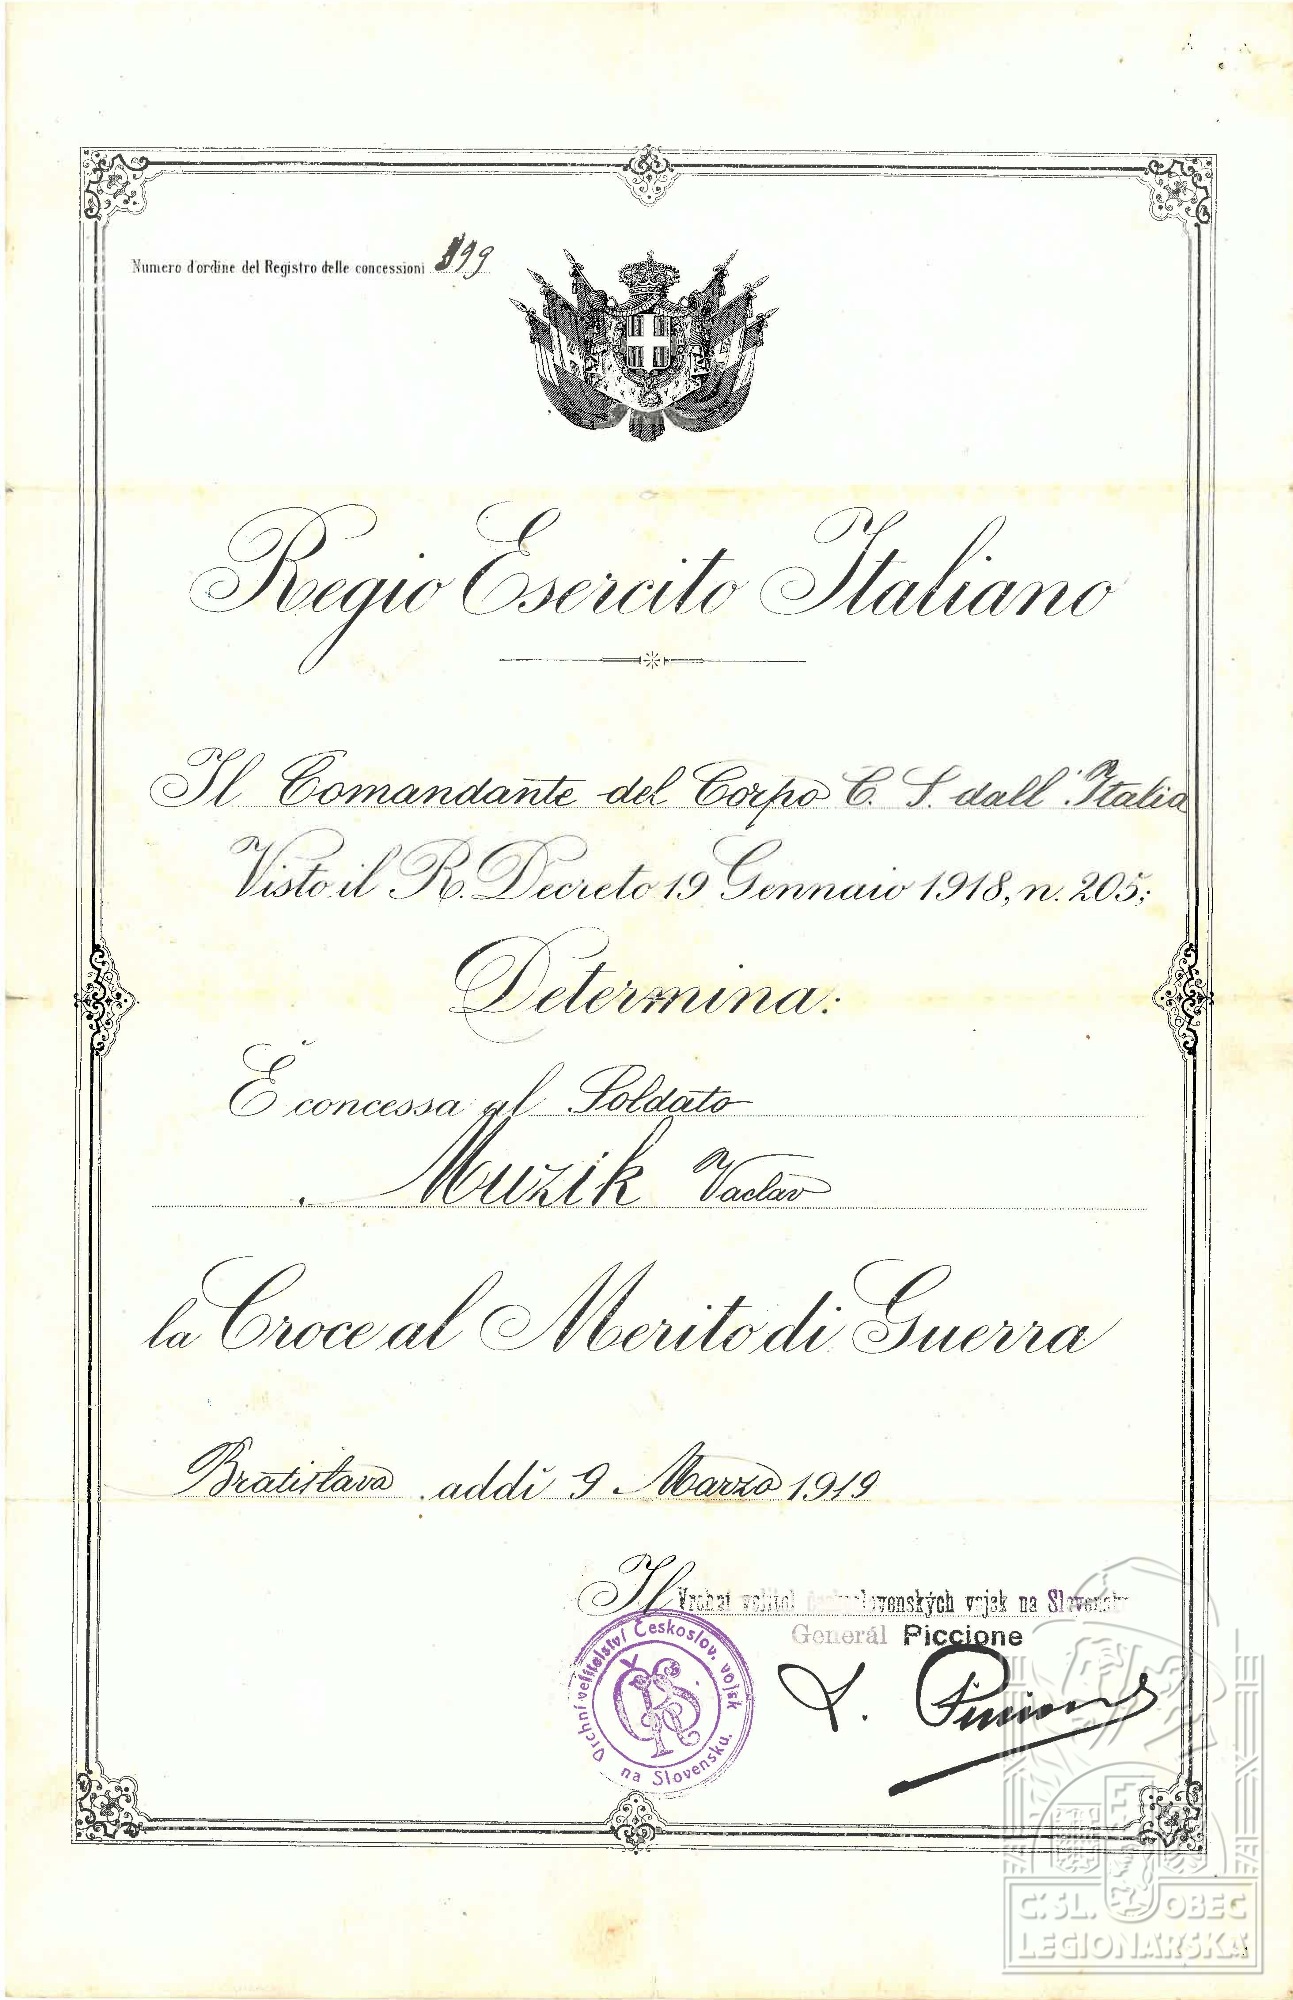 Numero d'ordine del Registro delle concessioni 199
Regio Esercito Italiano
Il Comandante del Corpo C. S. dall' Italia
Visto il R. Decreto 19 Gennaio 1918, n. 205;
Determina:
È concessa al Soldato
Muzik Vaclav
la Croce al Merito di Guerra
Bratislava addì 9 Marzo 1919
Il Vrchní velitel československých vojsk na Slovensku
Generál Piccione
L. Piccione
Vrchní velitelství Českoslov. vojsk na Slovensku.
ČSR
Č.SL. OBEC
LEGIONÁŘSKÁ